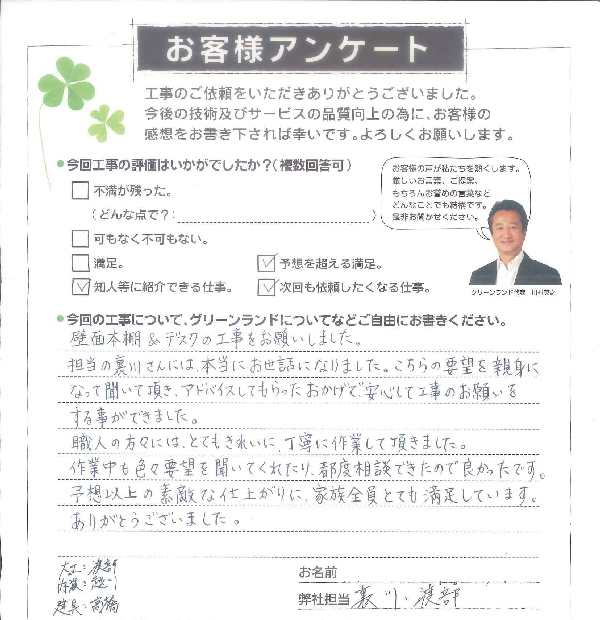 お客様アンケート
工事のご依頼をいただきありがとうございました。
今後の技術及びサービスの品質向上の為に、お客様の
感想をお書き下されば幸いです。よろしくお願いします。
●今回工事の評価はいかがでしたか?(複数回答可)
不満が残った。
(どんな点で?: )
可もなく不可もない。
満足。
予想を超える満足。
知人等に紹介できる仕事。
次回も依頼したくなる仕事。
お客様の声が私たちを熱くします。
厳しいお言葉、ご提案、
もちろんお誉めの言葉など
どんなことでも結構です。
是非お聞かせください。
グリーンランド代表
●今回の工事について、グリーンランドについてなどご自由にお書きください。
壁面本棚&デスクの工事をお願いしました。
担当の裏川さんには、本当にお世話になりました。こちらの要望を親身に
なって聞いて頂き、アドバイスしてもらったおかげで安心して工事のお願いを
する事ができました。
職人の方々には、とてもきれいに、丁寧に作業して頂きました。
作業中も色々要望を聞いてくれたり、都度相談できたので良かったです。
予想以上の素敵な仕上がりに、家族全員とても満足しています。
ありがとうございました。
大工:渡部
建具:高橋
お名前
弊社担当 裏川・渡部